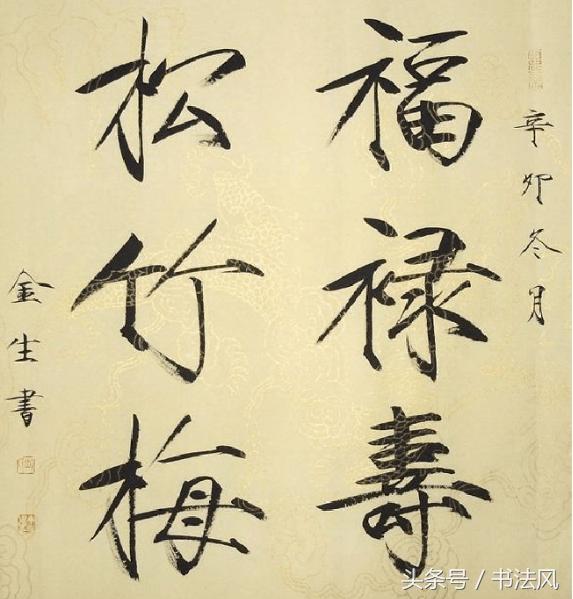 辛卯冬月
福禄壽
松竹梅
金生書
头条号／书法风